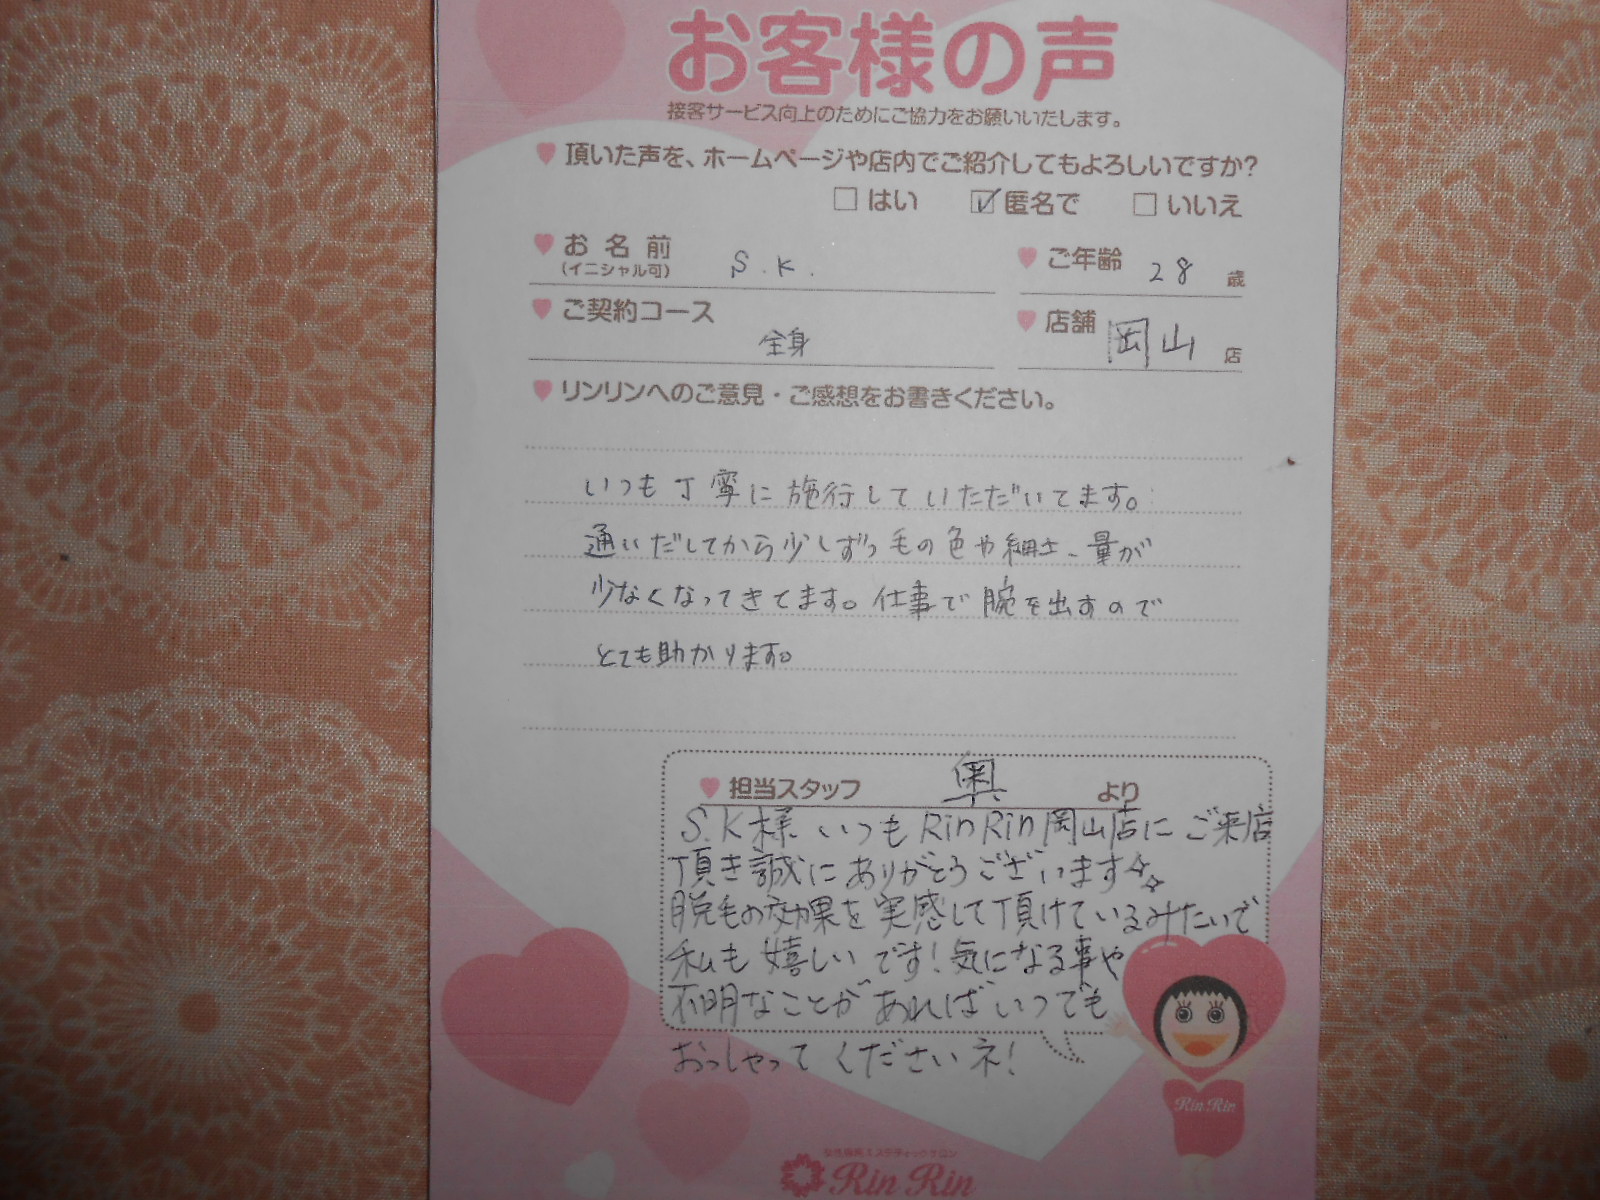 お客様の声
接客サービス向上のためにご協力をお願いいたします。
頂いた声を、ホームページや店内でご紹介してもよろしいですか?
はい 匿名で いいえ
お名前 S.K. ご年齢 28 歳
(イニシャル可)
ご契約コース 全身 店舗 岡山 店
リンリンへのご意見・ご感想をお書きください。
いつも丁寧に施行していただいてます。
通いだしてから少しずつ毛の色や細さ、量が
少なくなってきてます。仕事で腕を出すので
とても助かります。
担当スタッフ 奥 より
S.K様 いつもRinRin岡山店にご来店
頂き誠にありがとうございます
脱毛の効果を実感して頂けているみたいで
私も嬉しいです!気になる事や
不明なことがあればいつでも
おっしゃってくださいネ!
Rin Rin
Rin Rin